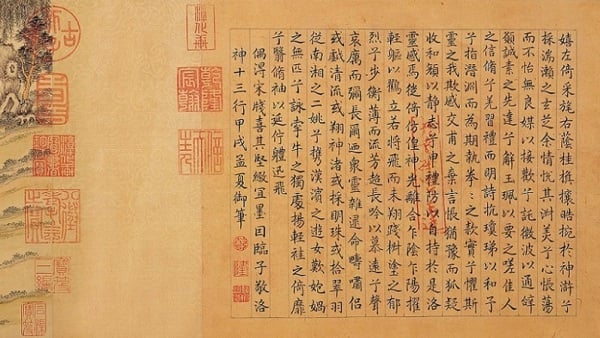 嬉左倚采旄右蔭桂旗攘皓捥於神滸兮
採湍瀨之玄芝余情悅其淑美兮心悵蕩
而不怡無良媒以接歡兮託微波以通辭
願誠素之先達兮解玉珮以要之嗟佳人
之信脩兮羌習禮而明詩抗瓊珶以和予
兮指潛淵而為期執拳〻之款實兮懼斯
靈之我欺感交甫之棄言悵猶豫而狐疑
收和顏以靜志兮申禮防以自持於是洛
靈感焉徙倚傍偟神光離合乍陰乍陽擢
輕軀以鶴立若將飛而未翔踐椒塗之郁
烈兮步衡薄而流芳超長吟以慕遠兮聲
哀厲而彌長爾迺衆靈雜遝命疇嘯侶
或戲清流或翔神渚或採明珠或拾翠羽
從南湘之二姚兮攜漢濱之遊女歎匏媧
之無匹兮詠牽牛之獨處揚輕袿之倚靡
兮翳脩袖以延佇體迅飛
偶得宋牋喜其堅緻宜墨因臨子敬洛
神十三行甲戌孟夏御筆